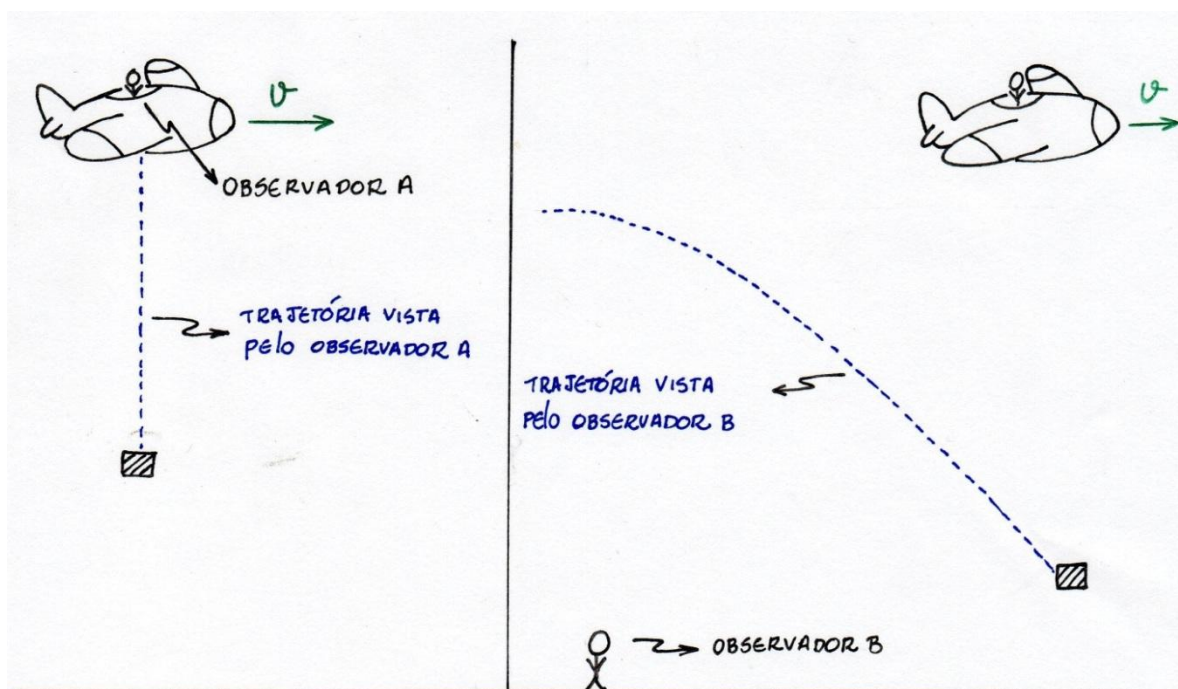 v
OBSERVADOR A
TRAJETÓRIA VISTA
PElO OBSERVADOR A
v
TRAJETÓRIA VISTA
PElO OBSERVADOR B
OBSERVADOR B